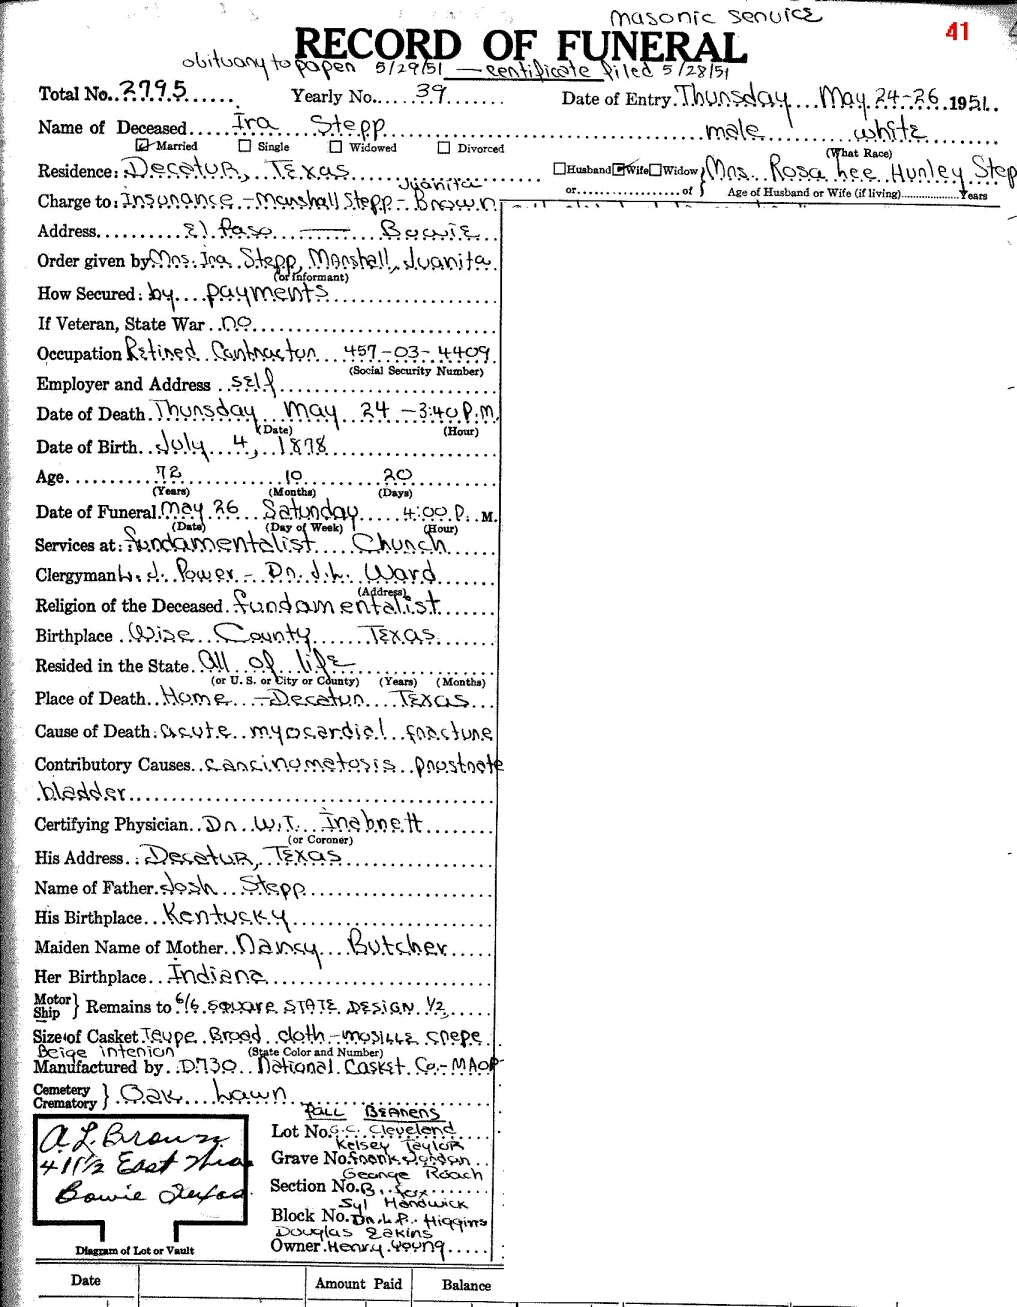 masonic service
41
RECORD OF FUNERAL
obituary to paper 5/29/51 — certificate filed 5/28/51
Total No. 2795 Yearly No. 39 Date of Entry Thursday May 24-26 1951
Name of Deceased Ira Stepp male white
Married Single Widowed Divorced (What Race)
Residence: Decatur, Texas Husband Wife Widow Mrs. Rosa Lee Hunley Step
or of Age of Husband or Wife (if living) Years
Juanita
Charge to: Insurance - Marshall Stepp - Brown
Address El Paso — Bowie
Order given by Mrs. Ira Stepp, Marshall, Juanita
(or Informant)
How Secured: by payments
If Veteran, State War no
Occupation Retired Contractor 457-03-4409
(Social Security Number)
Employer and Address self
Date of Death Thursday May 24 - 3:40 P.M.
(Date) (Hour)
Date of Birth July 4, 1878
Age 72 10 20
(Years) (Months) (Days)
Date of Funeral May 26 Saturday 4:00 P. M.
(Date) (Day of Week) (Hour)
Services at: fundamentalist Church
Clergyman W. J. Power - Dr. J. L. Ward
(Address)
Religion of the Deceased fundamentalist
Birthplace Wise County Texas
Resided in the State All of life
(or U. S. or City or County) (Years) (Months)
Place of Death Home - Decatur Texas
Cause of Death: acute myocardial fracture
Contributory Causes carcinometosis prostrate
bladder
Certifying Physician Dr. W.T. Inabnett
(or Coroner)
His Address: Decatur, Texas
Name of Father Josh Stepp
His Birthplace Kentucky
Maiden Name of Mother Nancy Butcher
Her Birthplace Indiana
Motor Ship } Remains to 6/6 square STATE DESIGN 1/2
Size of Casket Teupe Broad cloth - mosille crepe
Beige interior (State Color and Number)
Manufactured by D730 National Casket Co. - MAOP
Cemetery Crematory } Oak Lawn
Pall Bearers
A L Brown
411 1/2 East
Bowie Texas
Lot No. G.C. Cleveland
Kelsey Taylor
Grave No. Frank Jordan
George Roach
Section No. B. Fox
Syl Hardwick
Block No. Dr. L.P. Higgins
Douglas Eakins
Owner Henry Young
Diagram of Lot or Vault
Date Amount Paid Balance